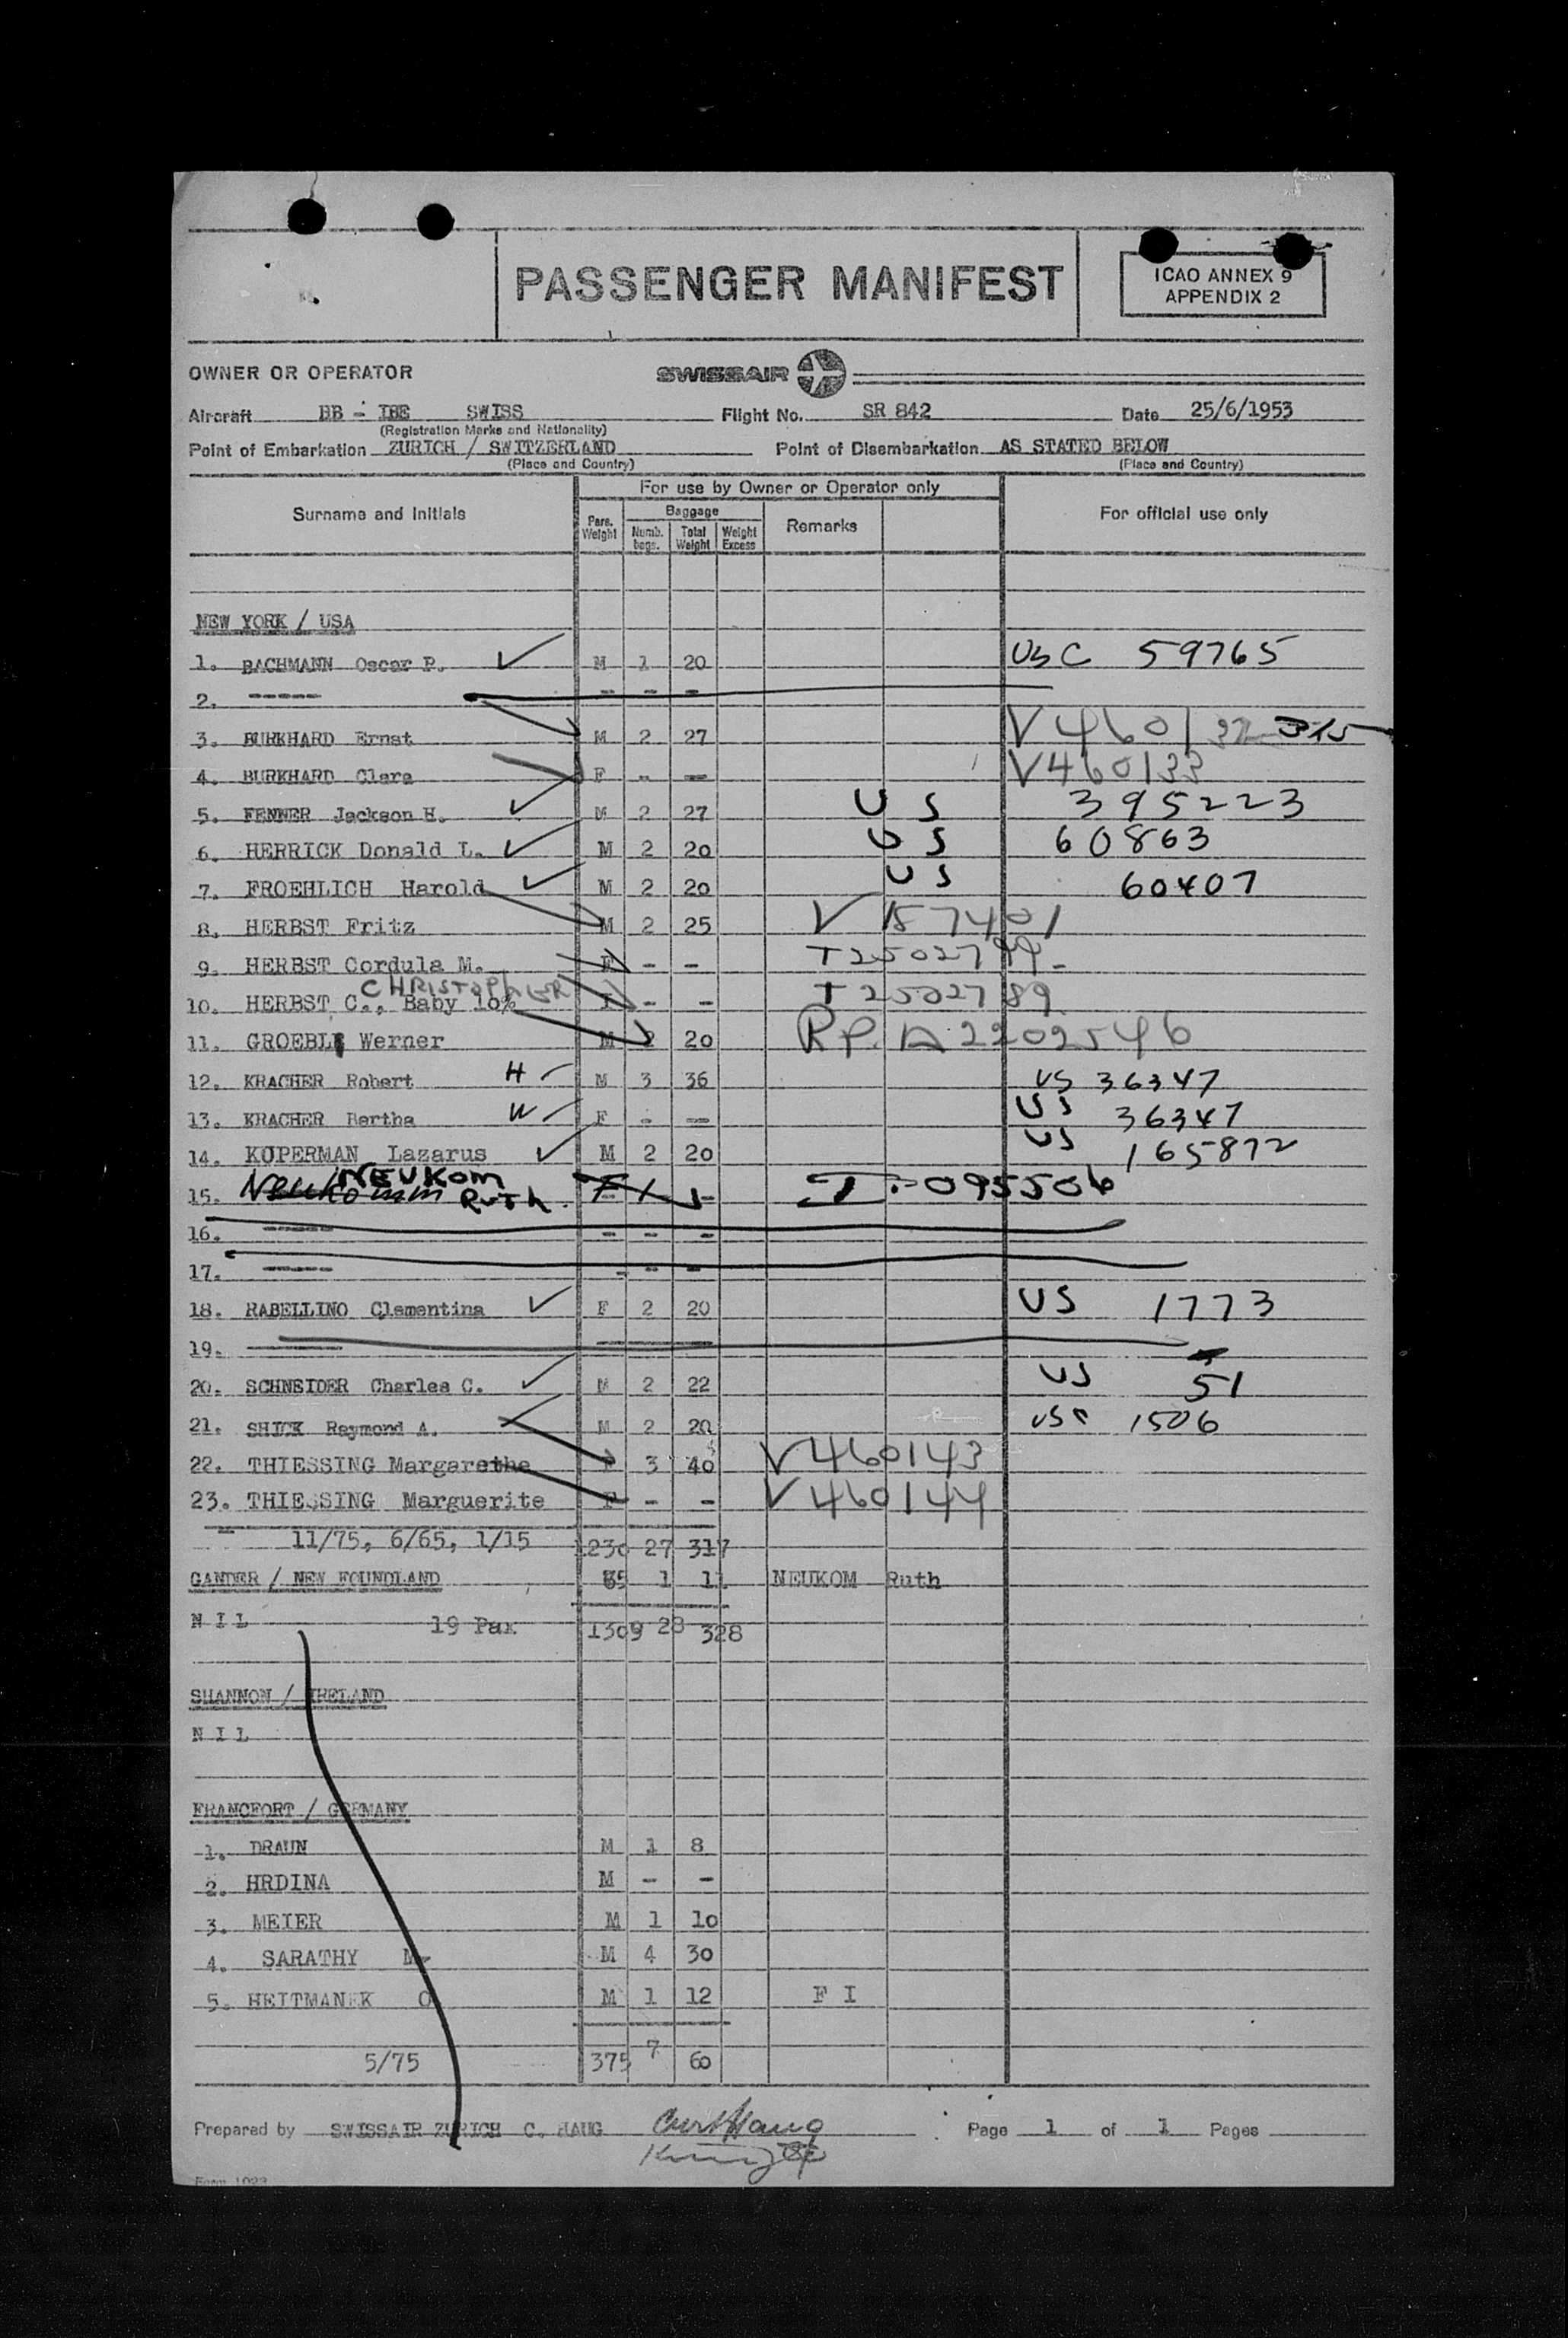 PASSENGER MANIFEST
ICAO ANNEX 9
APPENDIX 2
OWNER OR OPERATOR SWISSAIR
Aircraft BB - IBE SWISS Flight No. SR 842 Date 25/6/1953
(Registration Marks and Nationality)
Point of Embarkation ZURICH / SWITZERLAND Point of Disembarkation AS STATED BELOW
(Place and Country) (Place and Country)
For use by Owner or Operator only
Surname and Initials Pers. Weight Baggage Numb. bags. Total Weight Weight Excess Remarks For official use only
NEW YORK / USA
1. BACHMANN Oscar P. M 1 20 USC 59765
2. ----- - - -
3. BURKHARD Ernst M 2 27 V4601
4. BURKHARD Clara F - - V460133
5. FENNER Jackson H. M 2 27 US 395223
6. HERRICK Donald L. M 2 20 US 60863
7. FROEHLICH Harold M 2 20 US 60407
8. HERBST Fritz M 2 25 V 157401
9. HERBST Cordula M. F - -
CHRISTOPHER
10. HERBST C., Baby 10% - - T 2502789
11. GROEBLI Werner M 2 20 RP. A2202546
12. KRACHER Robert H M 3 36 US 36347
13. KRACHER Bertha W F - - US 36347
14. KUPERMAN Lazarus M 2 20 US 165872
15. Neukomm NEUKOM Ruth. T. 095506
16. ----- - - -
17. ----- - - -
18. RABELLINO Clementina F 2 20 US 1773
19. -----
20. SCHNEIDER Charles C. M 2 22 US 51
21. SHICK Raymond A. M 2 20 USC 1506
22. THIESSING Margarethe F 3 40 V460143
23. THIESSING Marguerite F - - V460144
11/75, 6/65, 1/15 1230 27 317
GANDER / NEW FOUNDLAND 1 11 NEUKOM Ruth
N I L 19 Pax 1309 28 328
SHANNON / IRELAND
N I L
FRANCFORT / GERMANY
1. DRAUN M 1 8
2. HRDINA M - -
3. MEIER M 1 10
4. SARATHY M 4 30
5. HEITMANEK O M 1 12 F I
5/75 375 7 60
Prepared by SWISSAIR ZURICH C. HAUG Curt Haug Page 1 of 1 Pages